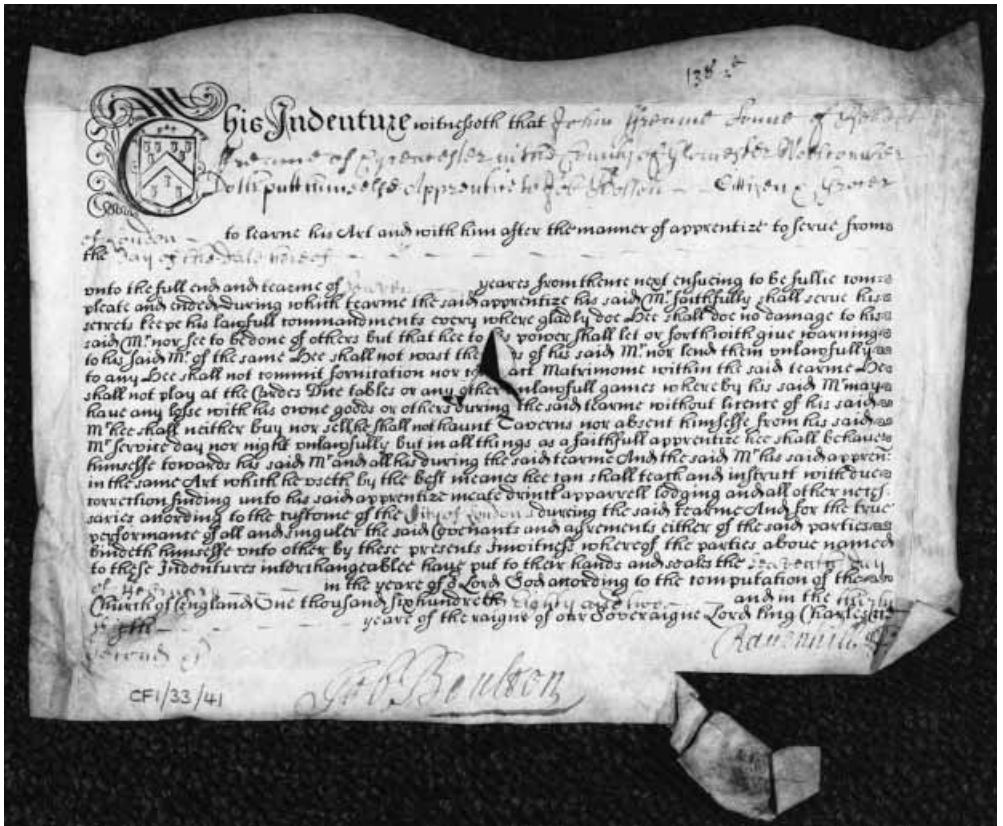 138
This Indenture witnesseth that John Greame Sonne of
Greame of in the County of Gloucester
Doth putt himselfe Apprentice to Job Citizen &
of London to learne his Art and with him after the manner of apprentize to serve from
the Day of the Date hereof
unto the full end and tearme of yeares from thence next ensueing to be fullie com=
pleate and ended during which tearme the said apprentize his said Mr. faithfully shall serve his
secrets keepe his lawfull commandments every where gladly doe Hee shall doe no damage to his
said Mr. nor see to be done of others but that hee to power shall let or forthwith give warning
to his said Mr. of the same Hee shall not wast the of his said Mr. nor lend them unlawfully
to any Hee shall not commit fornication nor Matrimonie within the said tearme He
shall not play at the Cardes Dice tables or any other unlawfull games whereby his said Mr may
have any losse with his owne goods or others during the said tearme without licence of his said
Mr hee shall neither buy nor sell he shall not haunt Taverns nor absent himselfe from his said
Mr service day nor night unlawfully but in all things as a faithfull apprentize hee shall behave
himselfe towards his said Mr and all his during the said tearme And the said Mr his said appren:
in the same Art which he useth by the best meanes hee can shall teach and instruct with due
correction finding unto his said apprentize meate drinke apparrell lodging and all other neces
saries according to the custome of the City of London during the said tearme And for the true
performance of all and singuler the said Covenants and agrements either of the said parties
bindeth himselfe unto other by these presents In witness whereof the parties above named
to these Indentures interchangeablee have put to their hands and seales the day
of in the yeare of Lord God according to the computation of the
Church of England One thousand six hundreth Eighty and two and in the thirty
yeare of the raigne of our Soveraigne Lord king Charles
CF1/33/41
Job: Boulton